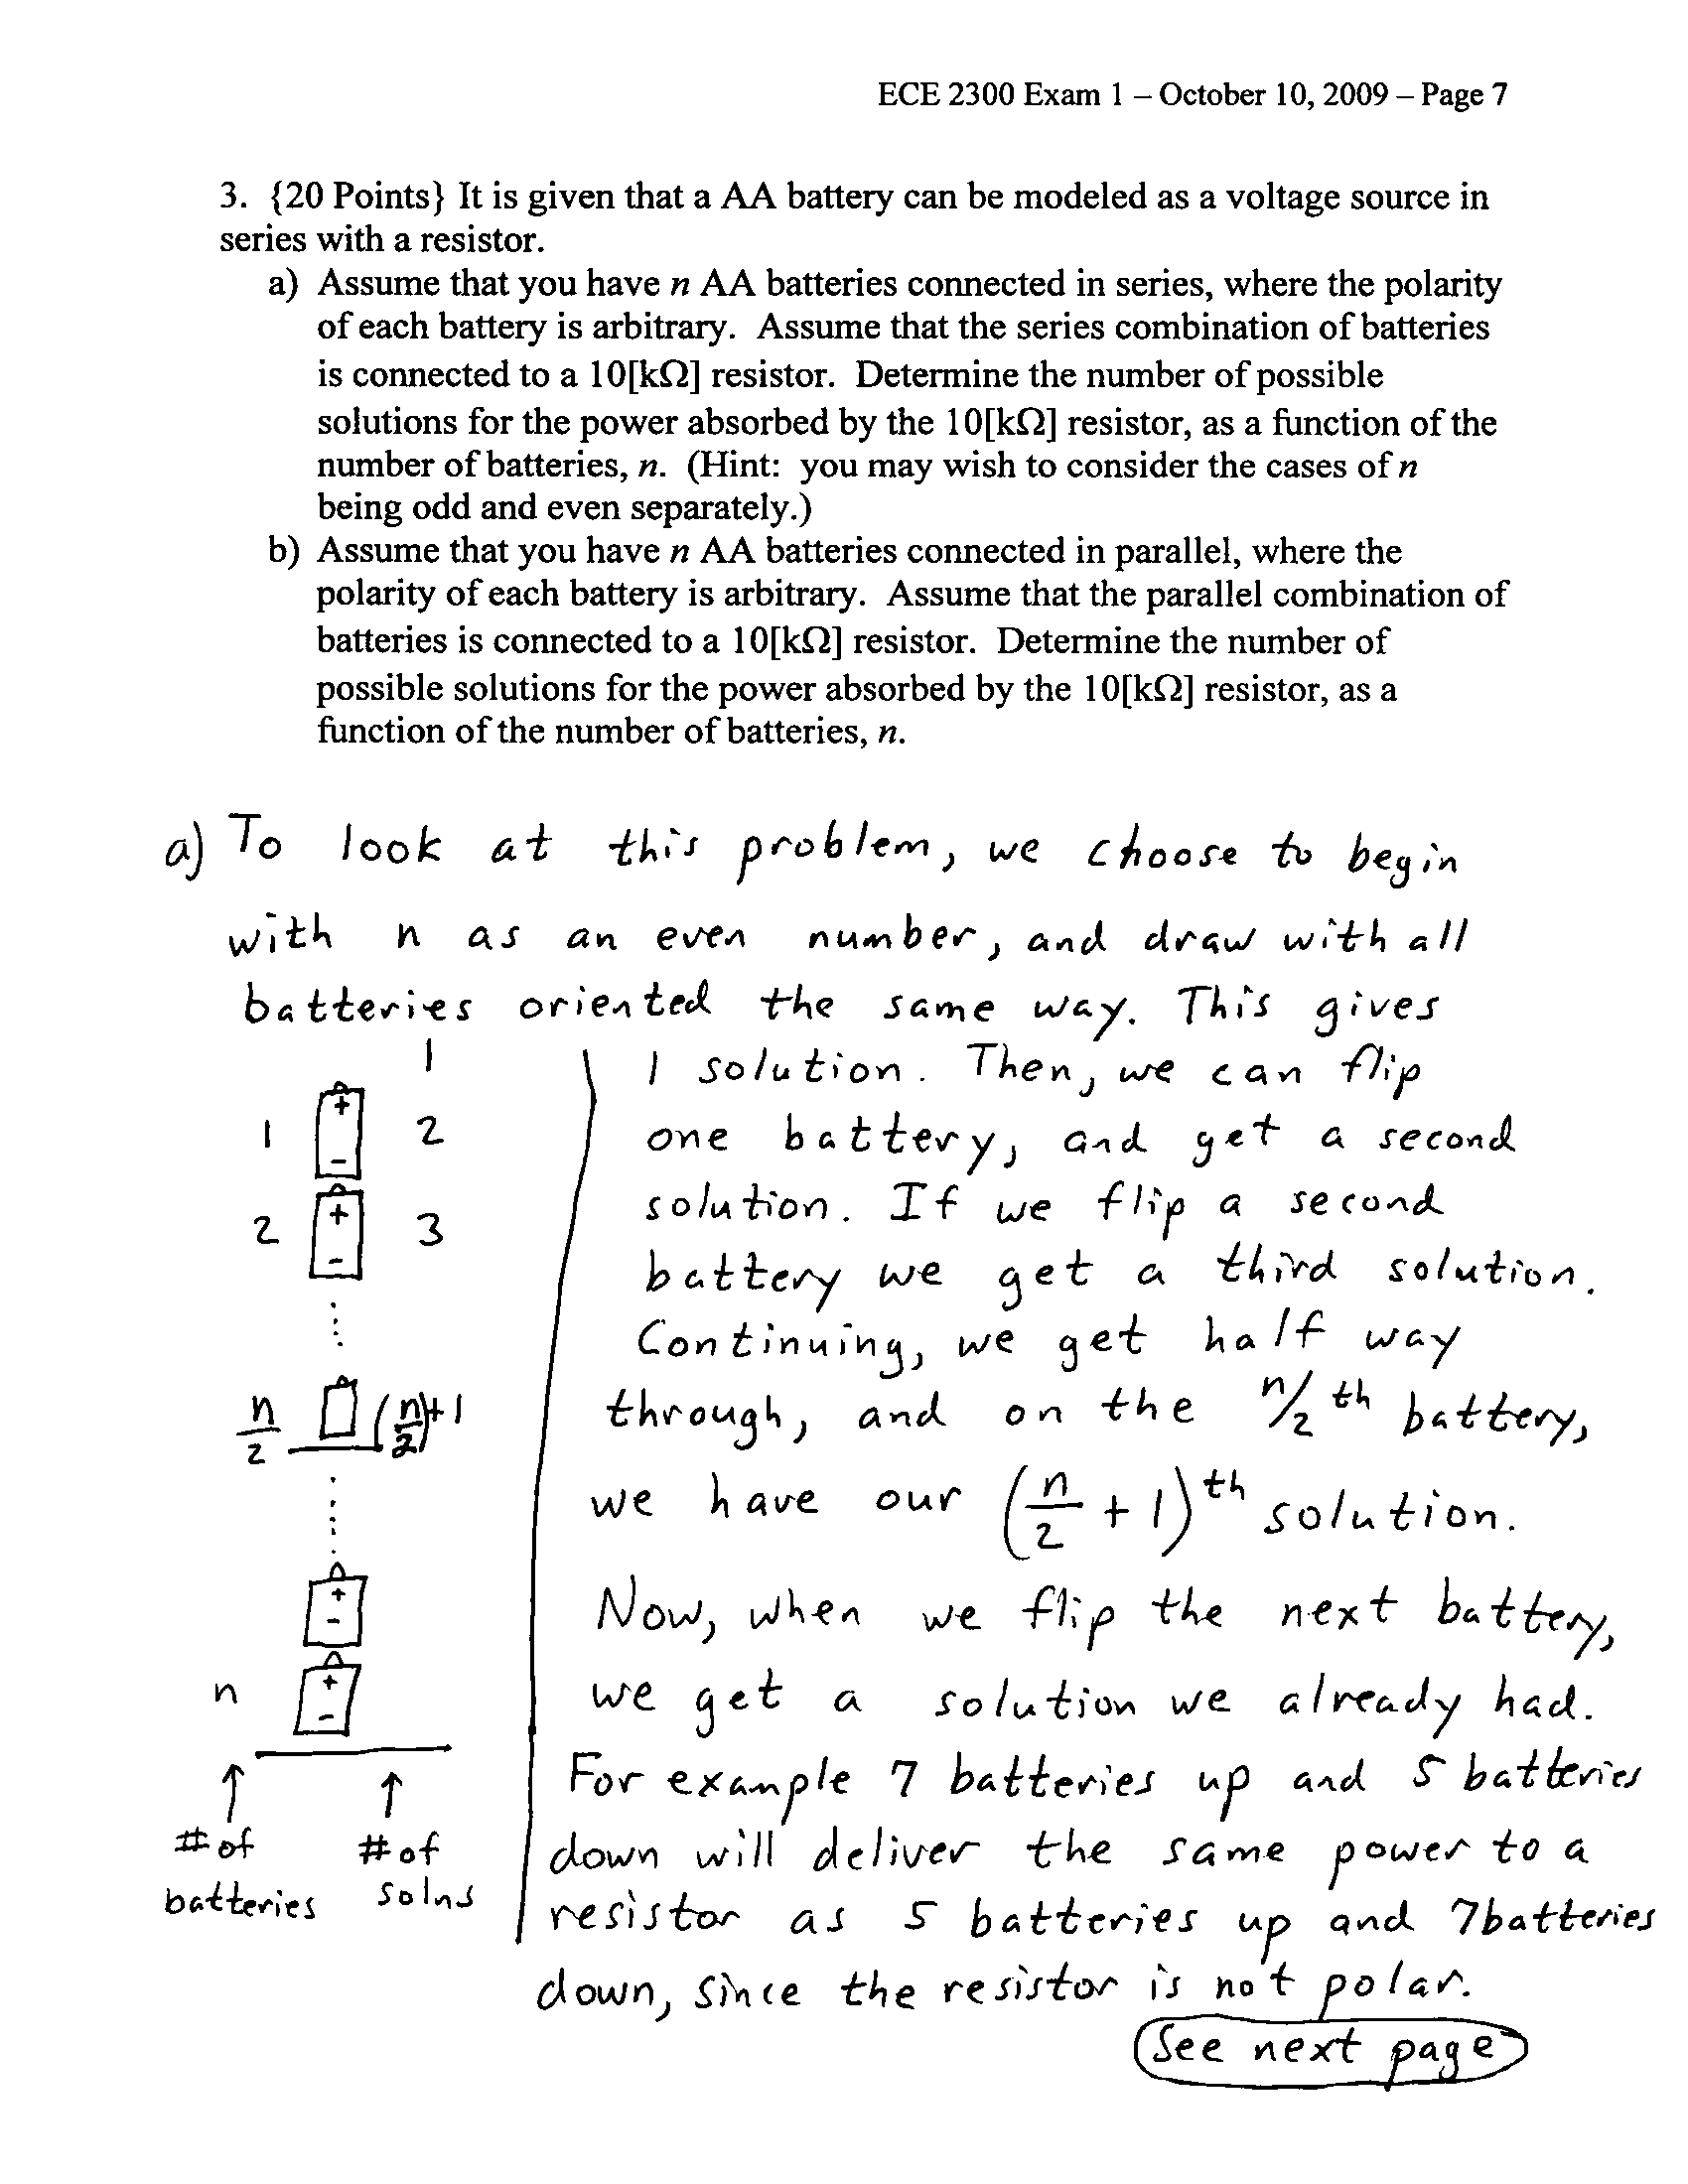 ECE 2300 Exam 1 – October 10, 2009 – Page 7
3. {20 Points} It is given that a AA battery can be modeled as a voltage source in
series with a resistor.
a) Assume that you have n AA batteries connected in series, where the polarity
of each battery is arbitrary. Assume that the series combination of batteries
is connected to a 10[kΩ] resistor. Determine the number of possible
solutions for the power absorbed by the 10[kΩ] resistor, as a function of the
number of batteries, n. (Hint: you may wish to consider the cases of n
being odd and even separately.)
b) Assume that you have n AA batteries connected in parallel, where the
polarity of each battery is arbitrary. Assume that the parallel combination of
batteries is connected to a 10[kΩ] resistor. Determine the number of
possible solutions for the power absorbed by the 10[kΩ] resistor, as a
function of the number of batteries, n.
a) To look at this problem, we choose to begin
with n as an even number, and draw with all
batteries oriented the same way. This gives
1
1 + - 2
2 + - 3
n/2 (n/2)+1
+ -
n + -
↑ ↑
# of # of
batteries solns
1 solution. Then, we can flip
one battery, and get a second
solution. If we flip a second
battery we get a third solution.
Continuing, we get half way
through, and on the n/2 th battery,
we have our (n/2 + 1)th solution.
Now, when we flip the next battery,
we get a solution we already had.
For example 7 batteries up and 5 batteries
down will deliver the same power to a
resistor as 5 batteries up and 7 batteries
down, since the resistor is not polar.
See next page